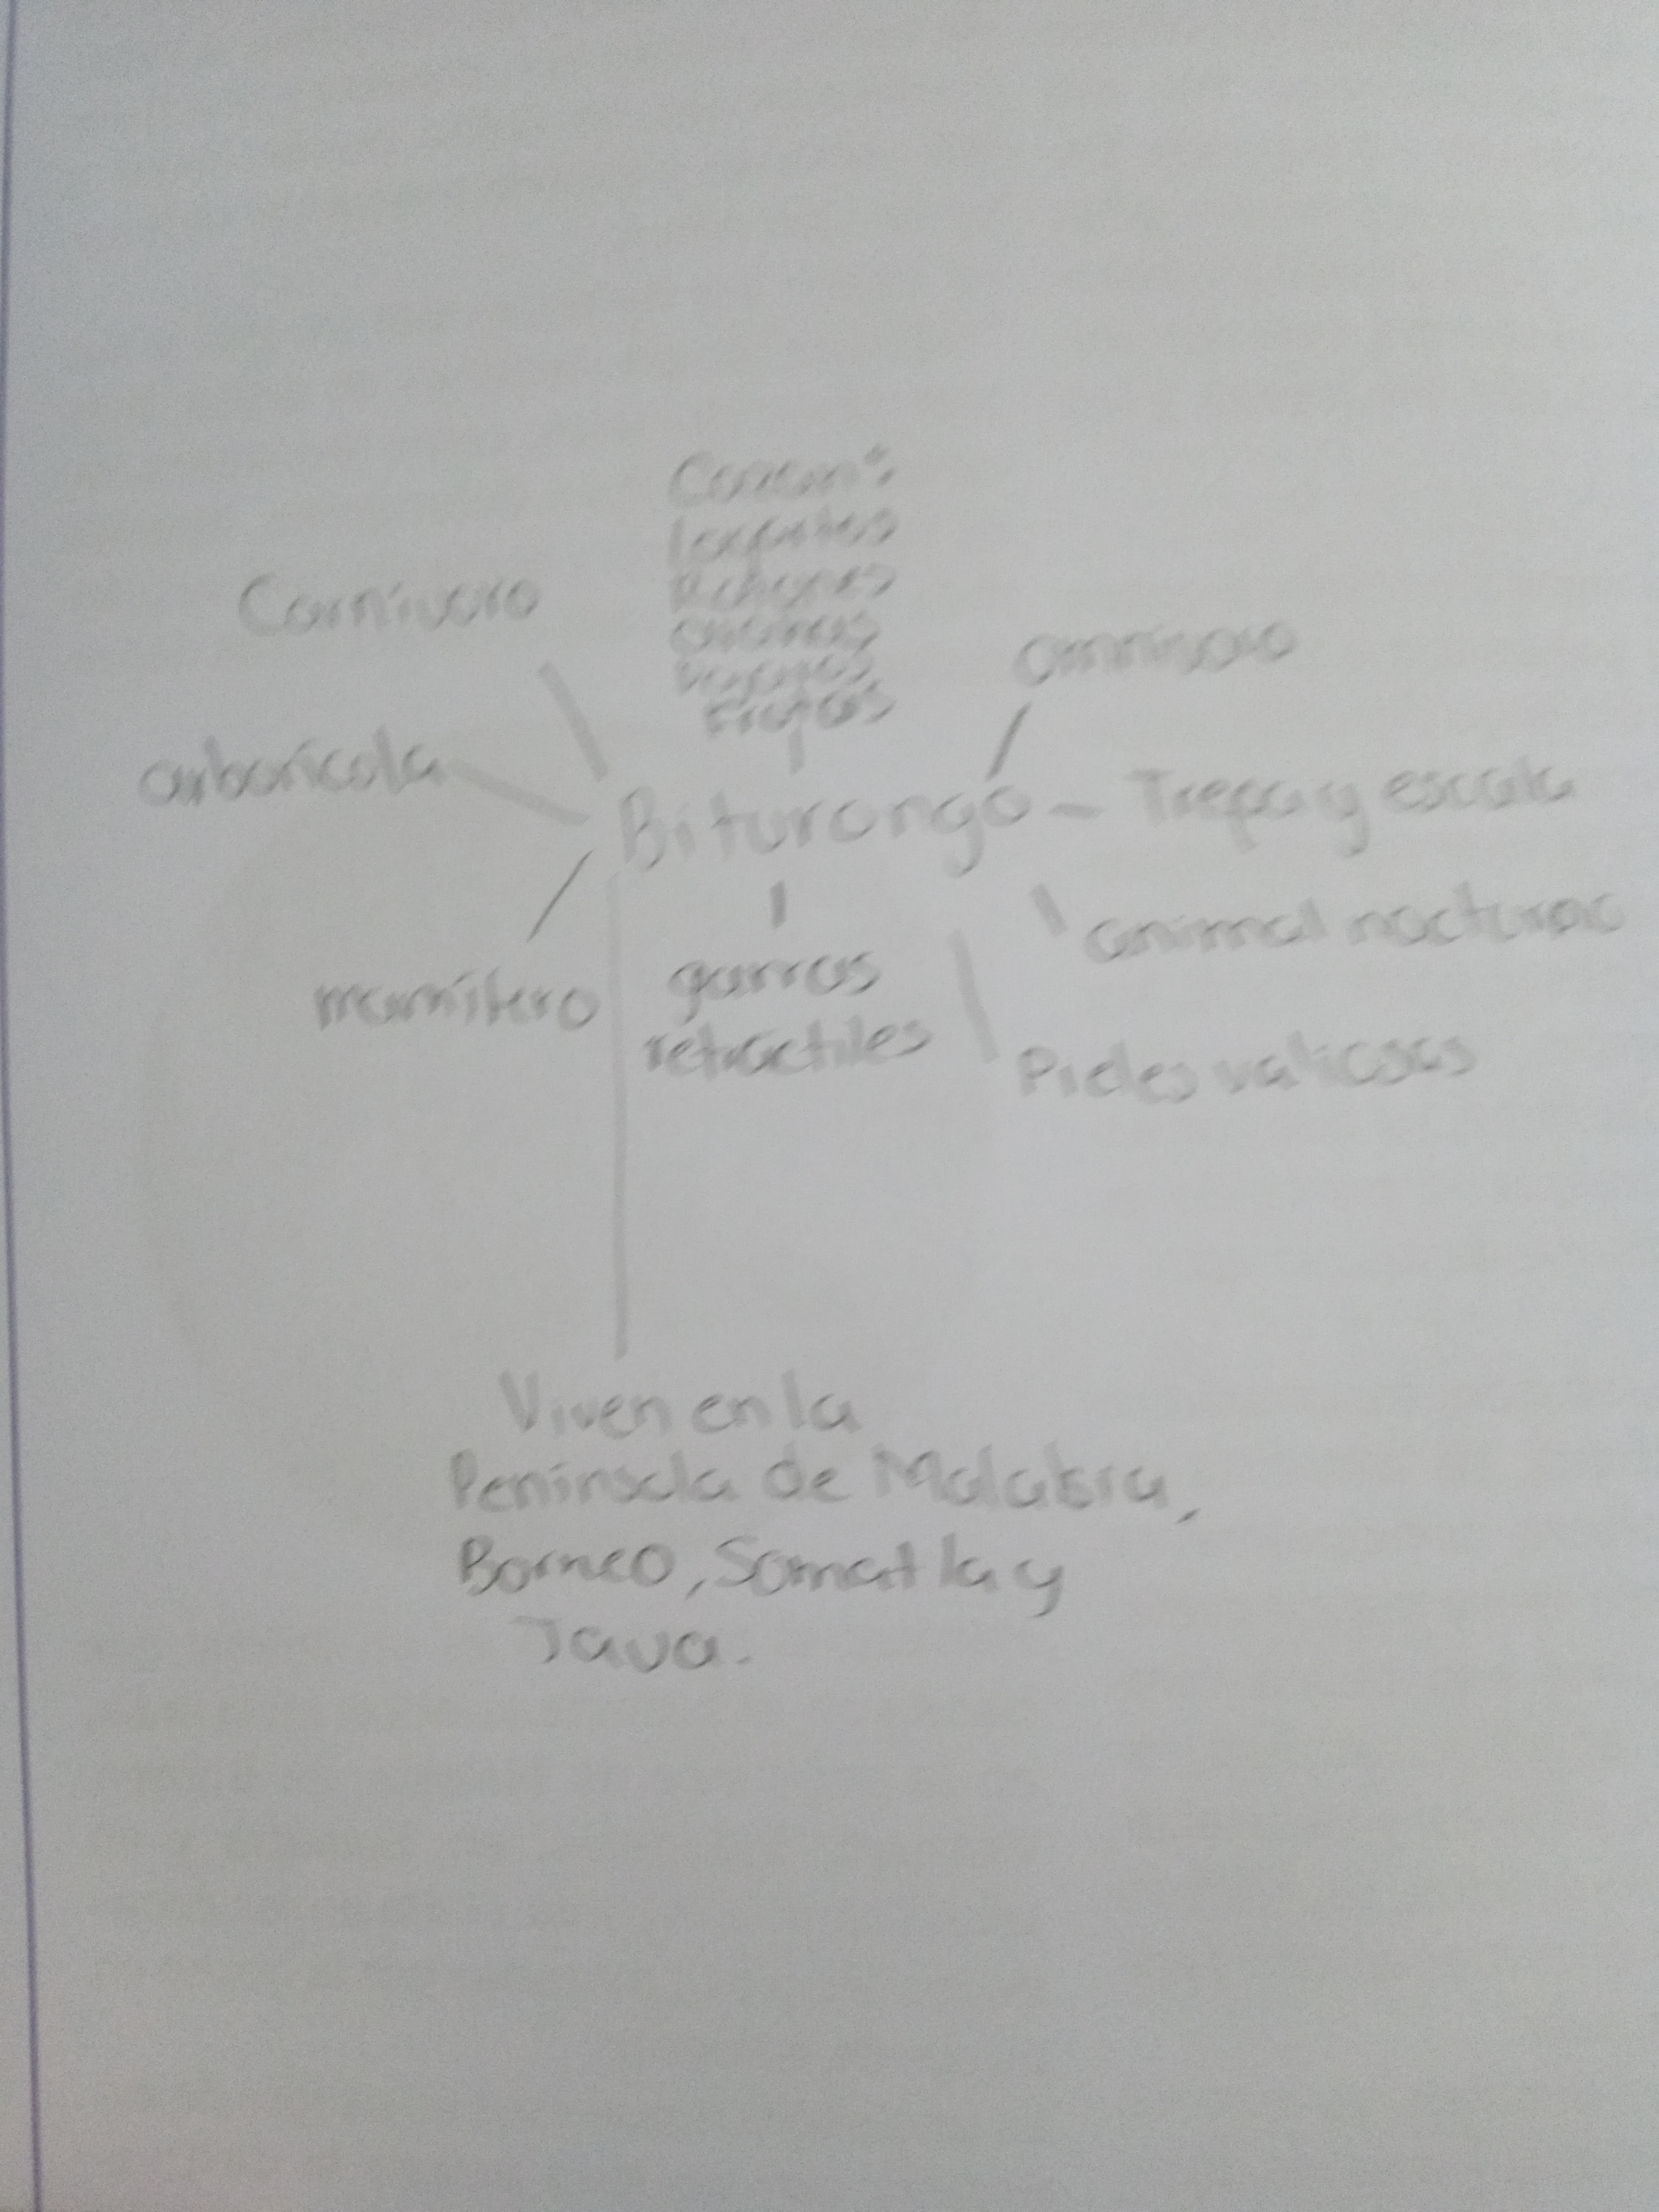 Comen:
Ratones
Frutas
Carnivoro
omnivoro
arboricola
Biturongo
Trepa y escala
animal nocturno
mamifero
garras
retractiles
Pieles valiosas
Viven en la
Peninsula de Malabra,
Borneo, Somatla y
Java.